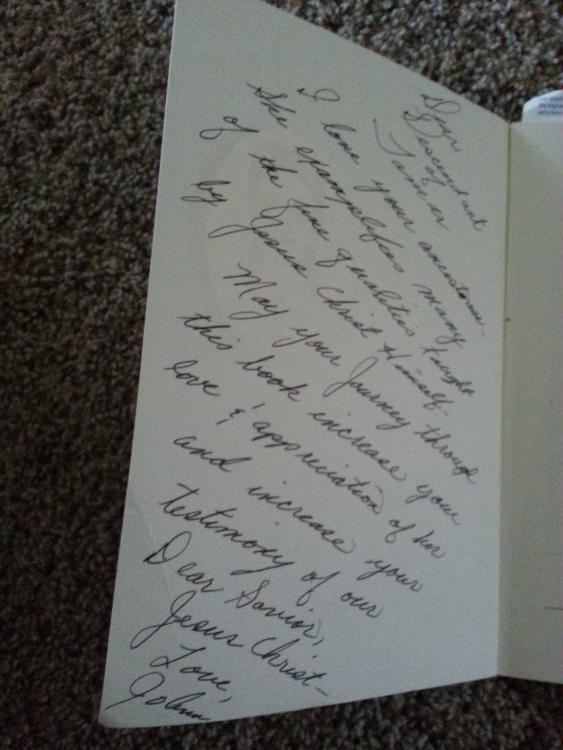 Dear
Descendant
of
Tamar
I love your ancestor.
She exemplifies many
of the fine qualities taught
by Jesus Christ Himself.
May your Journey through
this book increase your
love & appreciation of her
and increase your
testimony of our
Dear Savior,
Jesus Christ-
Love,